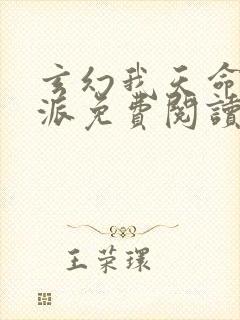 玄幻我天命
派免費閱讀
王荣環